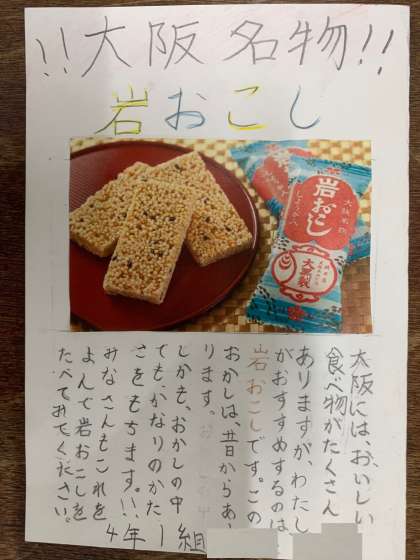 !!大阪名物!!
岩おこし
大阪名物
岩おこし
しょうが入
大黒製
大阪には、おいしい
食べ物がたくさん
ありますが、わたし
がおすすめするのは
岩おこしです。この
おかしは、昔からあ
ります。
しかも、おかしの中
でも、かなりのかた
さをもちます。!!
みなさんもこれを
よんで岩おこしを
たべてみてください。
4年1組